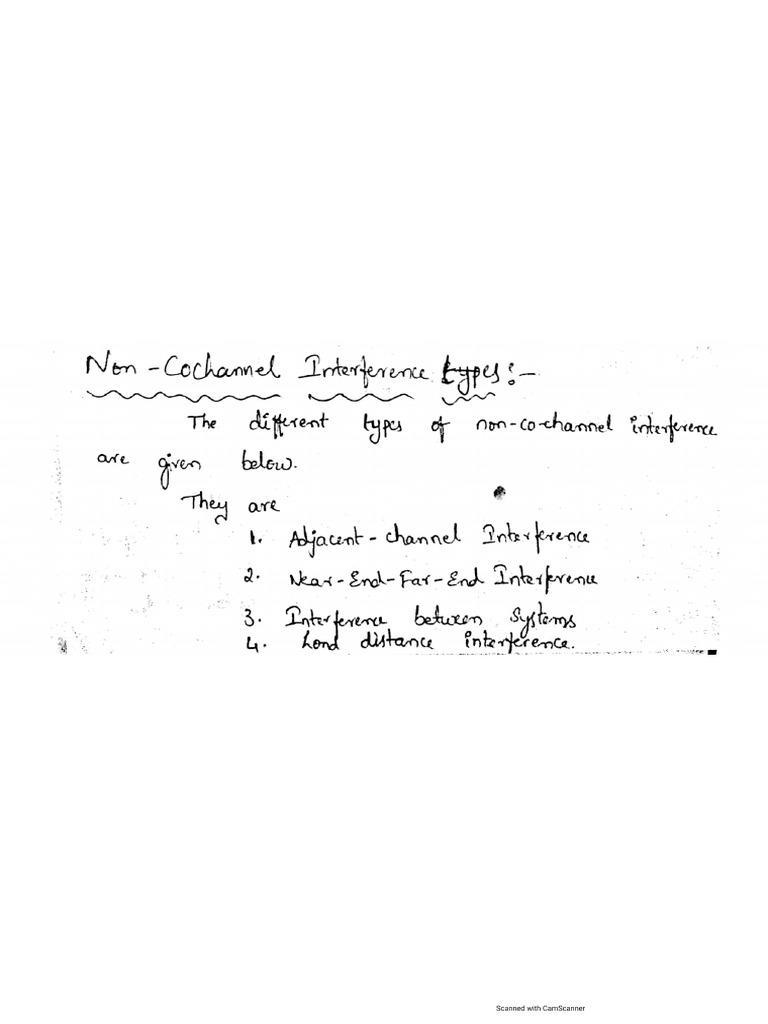 Non-Cochannel Interference types:-
The different types of non-co-channel interference
are given below.
They are
1. Adjacent-channel Interference
2. Near-End-Far-End Interference
3. Interference between Systems
4. Lond distance interference.
Scanned with CamScanner